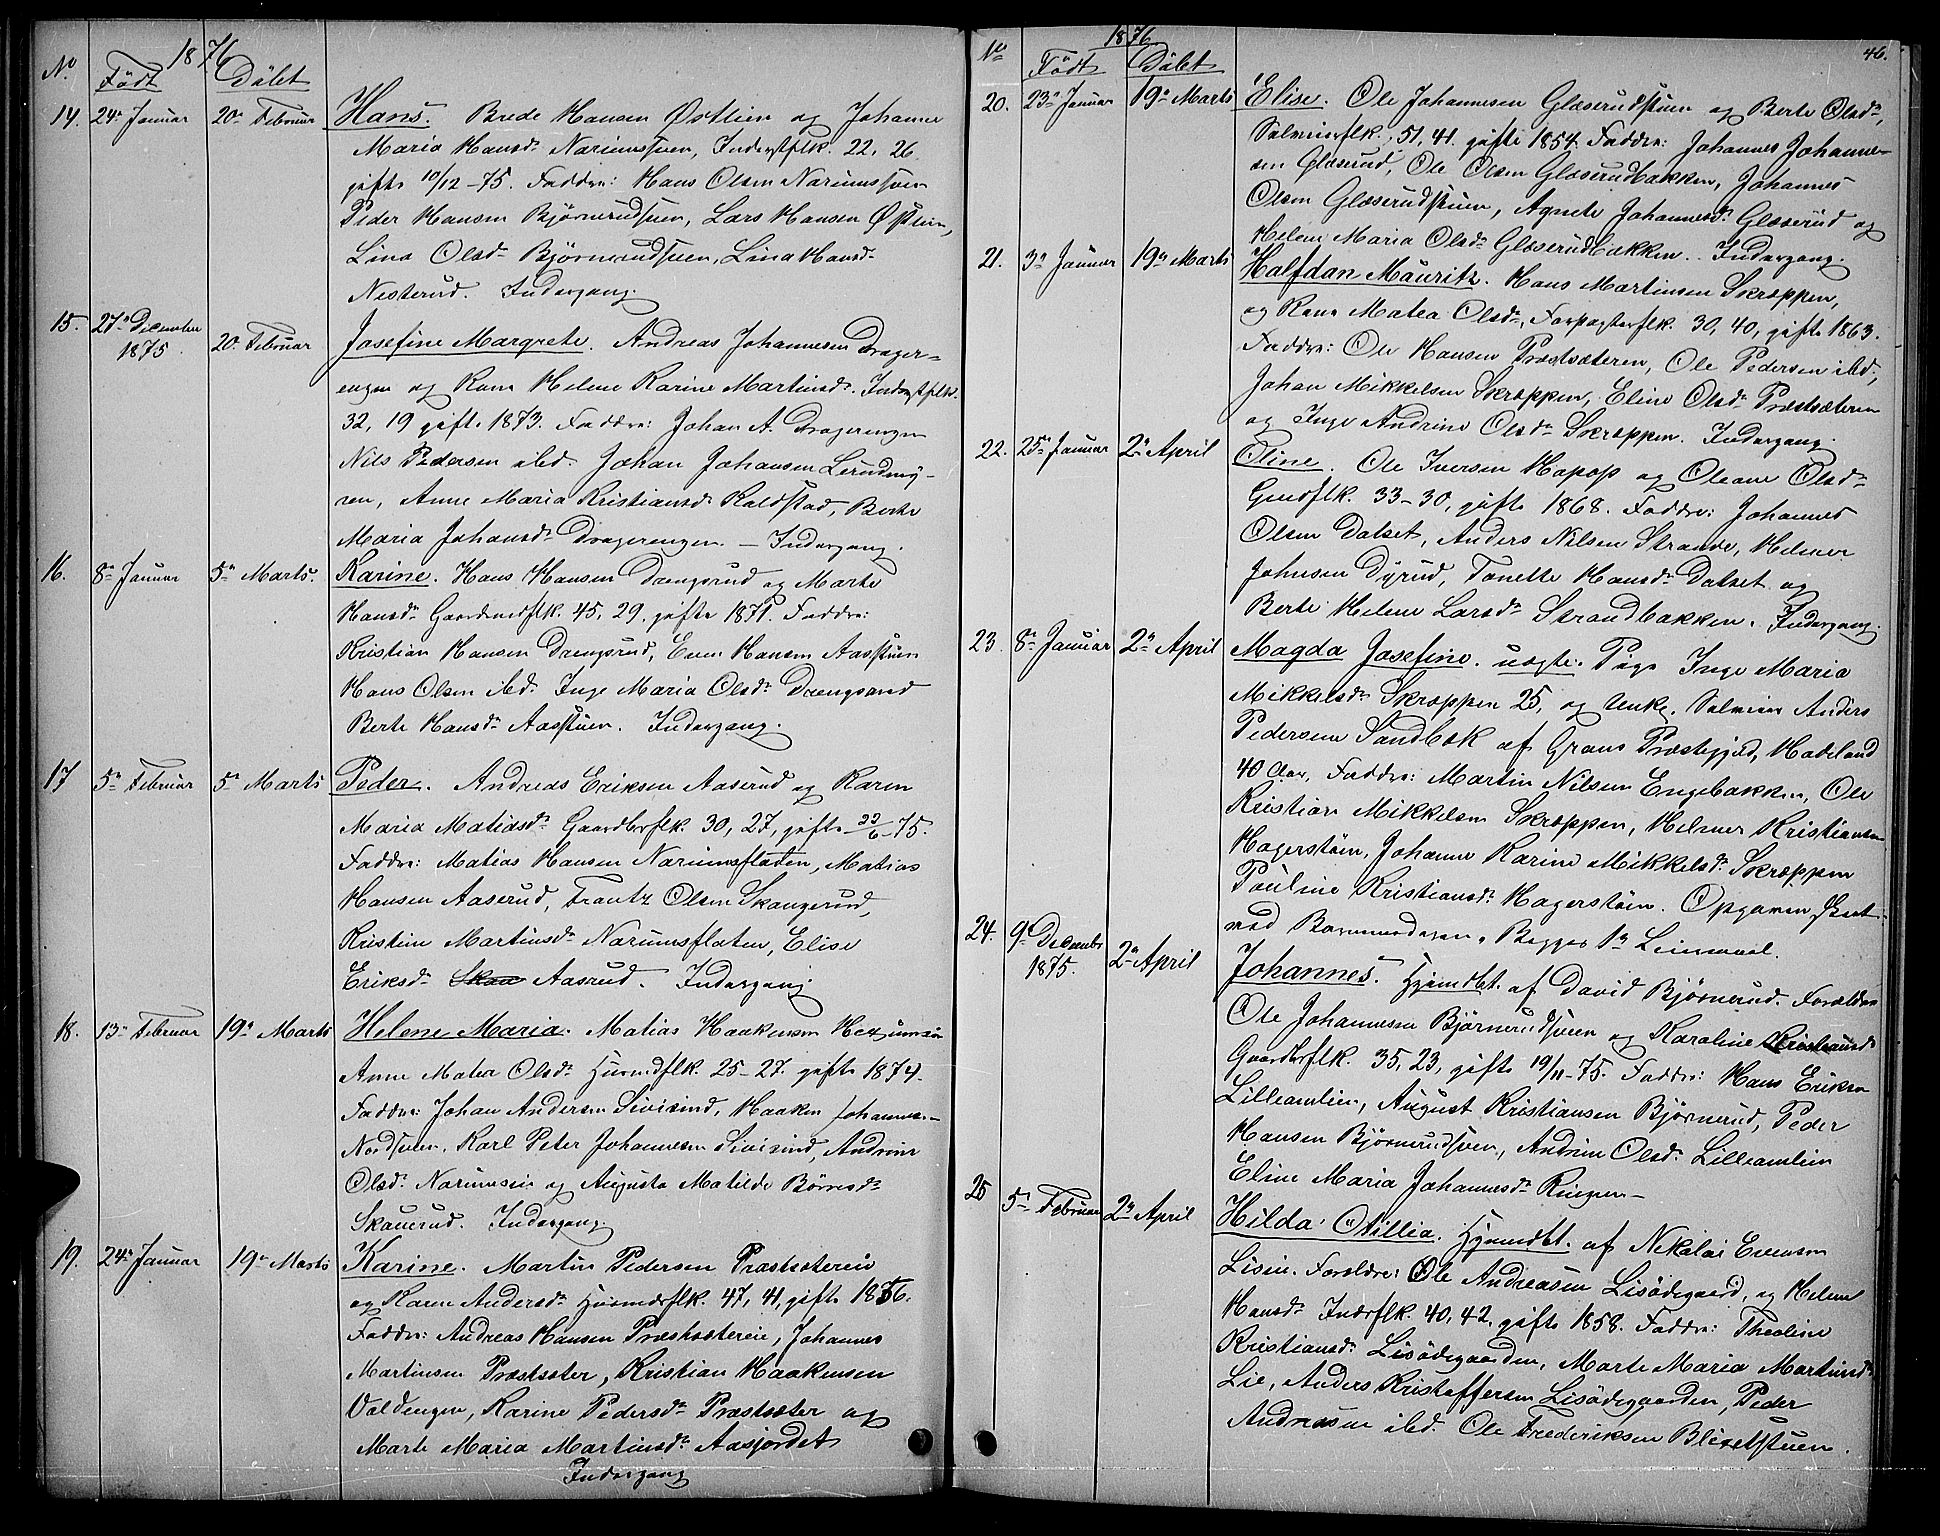 1876
No Födt Döbt
14. 24de Januar 20de Februar Hans. Brede Hansen Østlien og Johanne
Maria Hansdr Nariumseien, Inderstflk. 22, 26
gifte 10/12-75. Faddre: Hans Olsen Nariumseien
Peder Hansen Bjørnerudstuen, Lars Hansen Østlien,
Lina Olsdr Bjørnerudstuen, Lina Hansdr
Nesterud. Indergang.
15. 27de December 1875 20de Februar Josefine Margrete. Andreas Johannesen Drager-
engen og Kone Helene Karine Martinsdr. Inderstflk.
32, 19 gifte 1873. Faddre: Johan A. Dragerengen
Nils Pedersen ibd. Johan Johansen Lerudmy-
ren, Anne Maria Kristiansdr Kaldstad, Berte
Maria Johansdr Dragerengen. — Indergang.
16. 8de Januar 5te Marts. Karine. Hans Hansen Drengsrud og Marte
Hansdr Gaardmdflk. 45, 29. gifte 1871. Faddre:
Kristian Hansen Drengsrud, Even Hansen Aasstuen
Hans Olsen ibd. Inge Maria Olsdr Drengsrud
Berte Hansdr Aasstuen. Indergang.
17 5te Februar 5te Marts Peder. Andreas Eriksen Aaserud og Karen
Maria Matiasdr Gaardbrflk. 30, 27, gifte 22/6-75.
Faddre: Matias Hansen Nariumsflaten, Matias
Hansen Aaserud, Frantz Olsen Skangerud,
Kristine Martinsdr Nariumsflaten, Elise
Eriksdr Skau Aasrud. Indergang
18. 13de Februar 19de Marts Helene Maria. Matias Haakensen
Anne Matea Olsdr Husmdflk. 25-27. gifte 1874.
Faddre: Johan Andersen Sivisind, Haaken Johannes-
Nordstuen, Karl Peter Johannesen Sivisind, Andrine
Olsdr Nariumseie og Augusta Matilde Børresdr
Skauerud. Indergang.
19. 24de Januar 19de Marts Karine. Martin Pedersen Præstsætereie
og Karen Andersdr Husmdsflk. 47, 41, gifte 1856.
Faddre: Andreas Hansen Præstsætereie, Johannes
Martinsen Præstsæter, Kristian Haakensen
Voldengen, Karine Pedersdr Præstsæter og
Marte Maria Martinsdr Aasjordet
Indergang
46.
1876
No Födt Döbt
20. 23de Januar 19de Marts Elise. Ole Johannesen Glæserudstuen og Berte Olsdr,
Selveierflk. 51, 41. gifte 1854. Faddre: Johannes Johanne-
sen Glæserud, Ole Olsen Glæserudbakken, Johannes
Olsen Glæserudstuen, Agnete Johannesdr Glæserud og
Helene Maria Olsdr Glæserudbakken. Indergang.
21. 3de Januar 19de Marts Halfdan Mauritz. Hans Martinsen Skræppen,
og Kone Matea Olsdr, Forpagterflk. 30, 40, gifte 1863.
Faddre: Ole Hansen Præstsæteren, Ole Pedersen ibd,
Johan Mikkelsen Skræppen, Eline Olsdr Præstsæteren
og Inge Andrine Olsdr Skræppen. Indergang.
22. 25de Januar 2den April Oline. Ole Iversen Hapop og Oleane Olsdr
Gmdflk. 33-30, gifte 1868. Faddre: Johannes
Olsen Dalset, Anders Nilsen Strande, Helmer
Johnsen Dyrud, Tonette Hansdr Dalset og
Berte Helene Larsdr Strandbakken. Indergang.
23. 8de Januar 2den April Magda Josefine. uægte. Pige Inge Maria
Mikkelsdr Skræppen 25, og Unkg. Selveier Anders
Pedersen Sandbæk af Grans Præstegjæld, Hadeland
40 Aar. Faddre: Martin Nilsen Engebakken, Ole
Kristian Mikkelsen Skræppen, Helmer Kristiansen
Hagerstøen, Johanne Karine Mikkelsdr Skræppen
Pauline Kristiansdr Hagerstøen. Opgaven skeet
med Barnemoderen. Begges 1ste Leiermaal.
24. 9de Decembr 1875. 2den April Johannes. Hjemdbt. af David Bjørnerud. Forældre
Ole Johannesen Bjørnerudstuen og Karoline Kristiansdr
Gaardbrflk. 35, 23, gifte 19/11-75. Faddre: Hans Eriksen
Lilleamlien, August Kristiansen Bjørnerud, Peder
Hansen Bjørnerudstuen, Andrine Olsdr Lilleamlien
Eline Maria Johannesdr Ringen—
25 5te Februar 2den April Hilda Otillia. Hjemdbt. af Nikolai Evensen
Liseie. Forældre: Ole Andreasen Lisødegaard, og Helene
Hansdr Inderflk. 40, 42, gifte 1858. Faddre: Theoline
Kristiansdr Lisödegaarden, Marte Maria Martinsdr
Lie, Anders Kristoffersen Lisödegaarden, Peder
Andreasen ibd. Ole Frederiksen Blixetstuen.